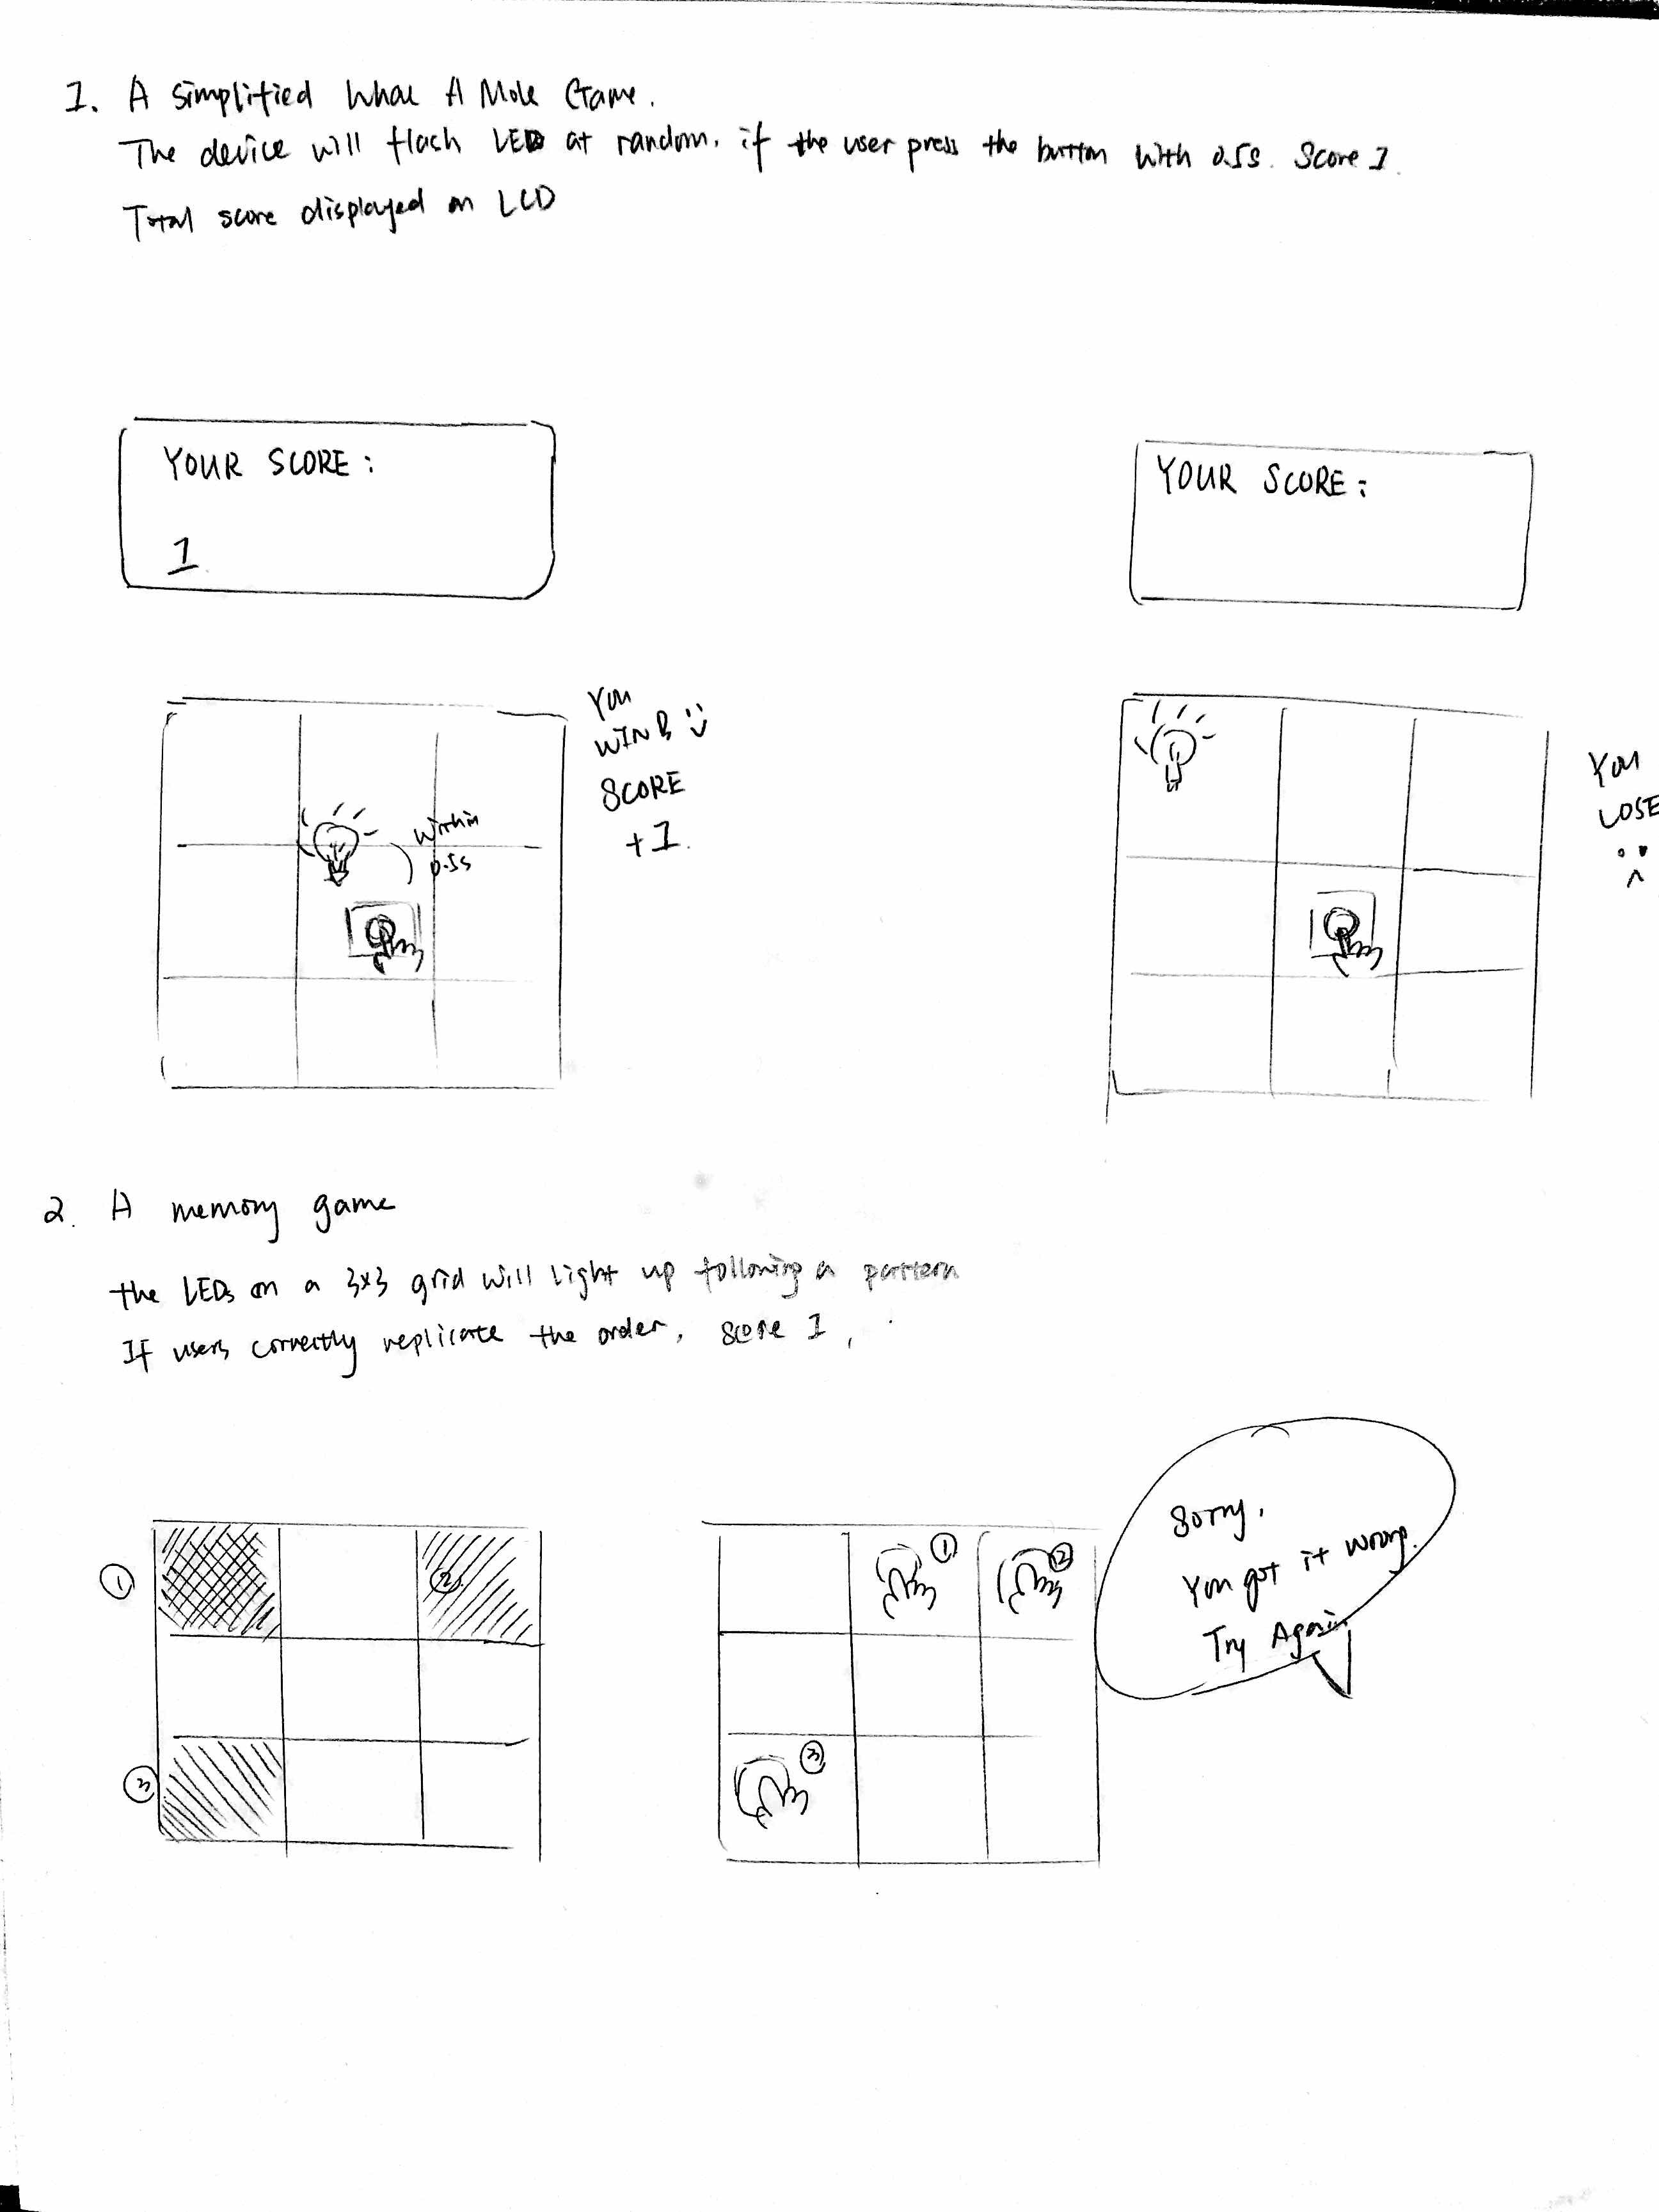 1. A simplified Whac A Mole Game.
The device will flash LED at random. if the user press the button with 0.5s. Score 1.
Total score displayed on LCD
YOUR SCORE:
1
YOUR SCORE:
You
WIN
SCORE
+1.
within
0.5s
You
LOSE
2. A memory game
the LEDs on a 3x3 grid will light up following a pattern
If users correctly replicate the order, score 1,
1
2
3
1
2
3
Sorry.
You got it wrong.
Try Again